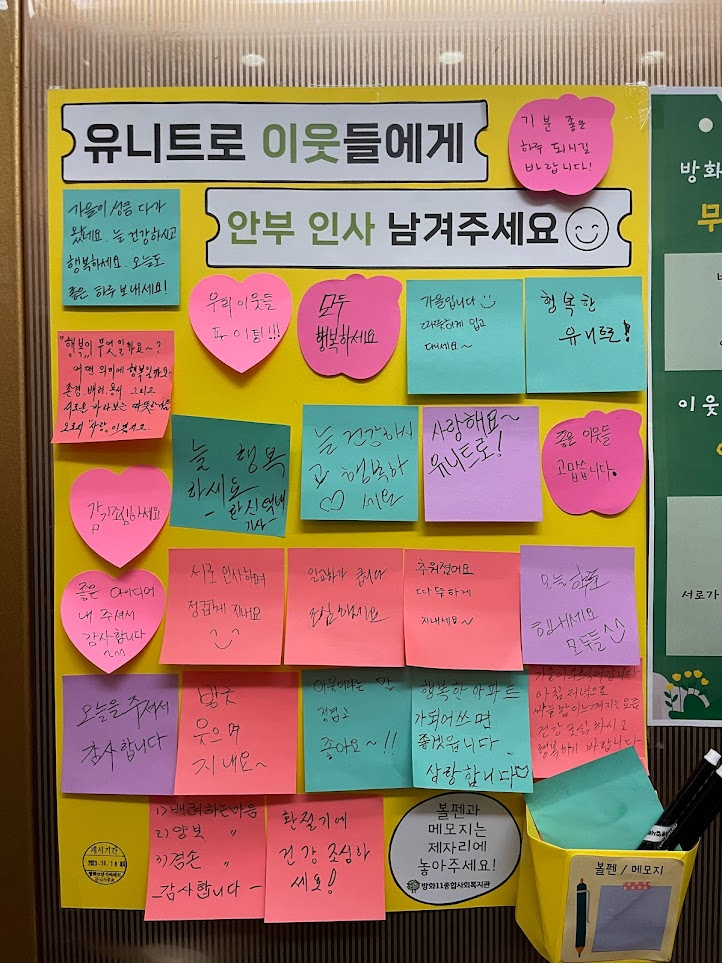 유니트로 이웃들에게
안부 인사 남겨주세요
기분 좋은
하루 되시길
바랍니다!
가을이 성큼 다가
왔네요. 늘 건강하시고
행복하세요. 오늘도
좋은 하루 보내세요!
우리 이웃들
파이팅!!!
모두
행복하세요
가을입니다
따뜻하게 입고
다니세요~
행복한
유니트로!
"행복이 무엇일까요~?
어떤 의미에 행복일까요~
존경, 배려, 용서 그리고
서로를 바라보는 따뜻한
늘 행복
하세요
한신택배
기사
늘 건강하시
고 행복하
세요
사랑해요~
유니트로!
좋은 이웃들
고맙습니다.
감기조심하세요
좋은 아이디어
내 주셔서
감사합니다
서로 인사하며
정겹게 지내요
일교차가 큽니다
조심하세요
추워졌어요
따뜻하게
지내세요~
오늘 하루
힘내세요
모두들^^
오늘을 주셔서
감사합니다
방긋
웃으며
지내요~
이웃이라는 말
정겹고
좋아요~!!
행복한 아파트
가되어쓰면
좋겠읍니다
삼항합니다
아침 저녁으로
쌀쌀함이 느껴지는 요즘
건강 조심 하시고
행복하기 바랍니다
1) 배려하는마음
2) 양보 〃
3) 겸손 〃
감사합니다
환절기에
건강 조심하
세요!
게시기간
볼펜과
메모지는
제자리에
놓아주세요!
방화11종합사회복지관
볼펜 / 메모지
방화
무
이웃
서로가